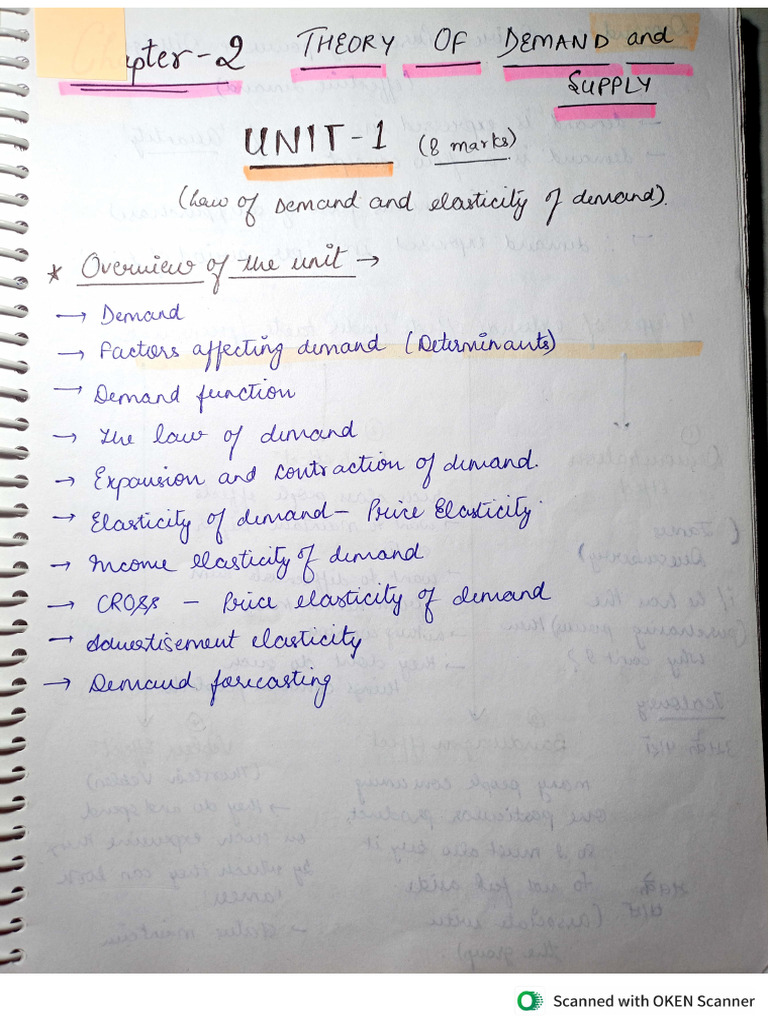 Chapter-2 THEORY OF DEMAND and
SUPPLY
UNIT-1 (8 marks)
(Law of Demand and elasticity of demand).
* Overview of the unit →
→ Demand
→ Factors affecting demand (Determinants)
→ Demand function
→ The law of demand
→ Expansion and contraction of demand.
→ Elasticity of demand - Price Elasticity
→ Income elasticity of demand
→ CROSS - Price elasticity of demand
→ Advertisement elasticity
→ Demand forecasting
Scanned with OKEN Scanner